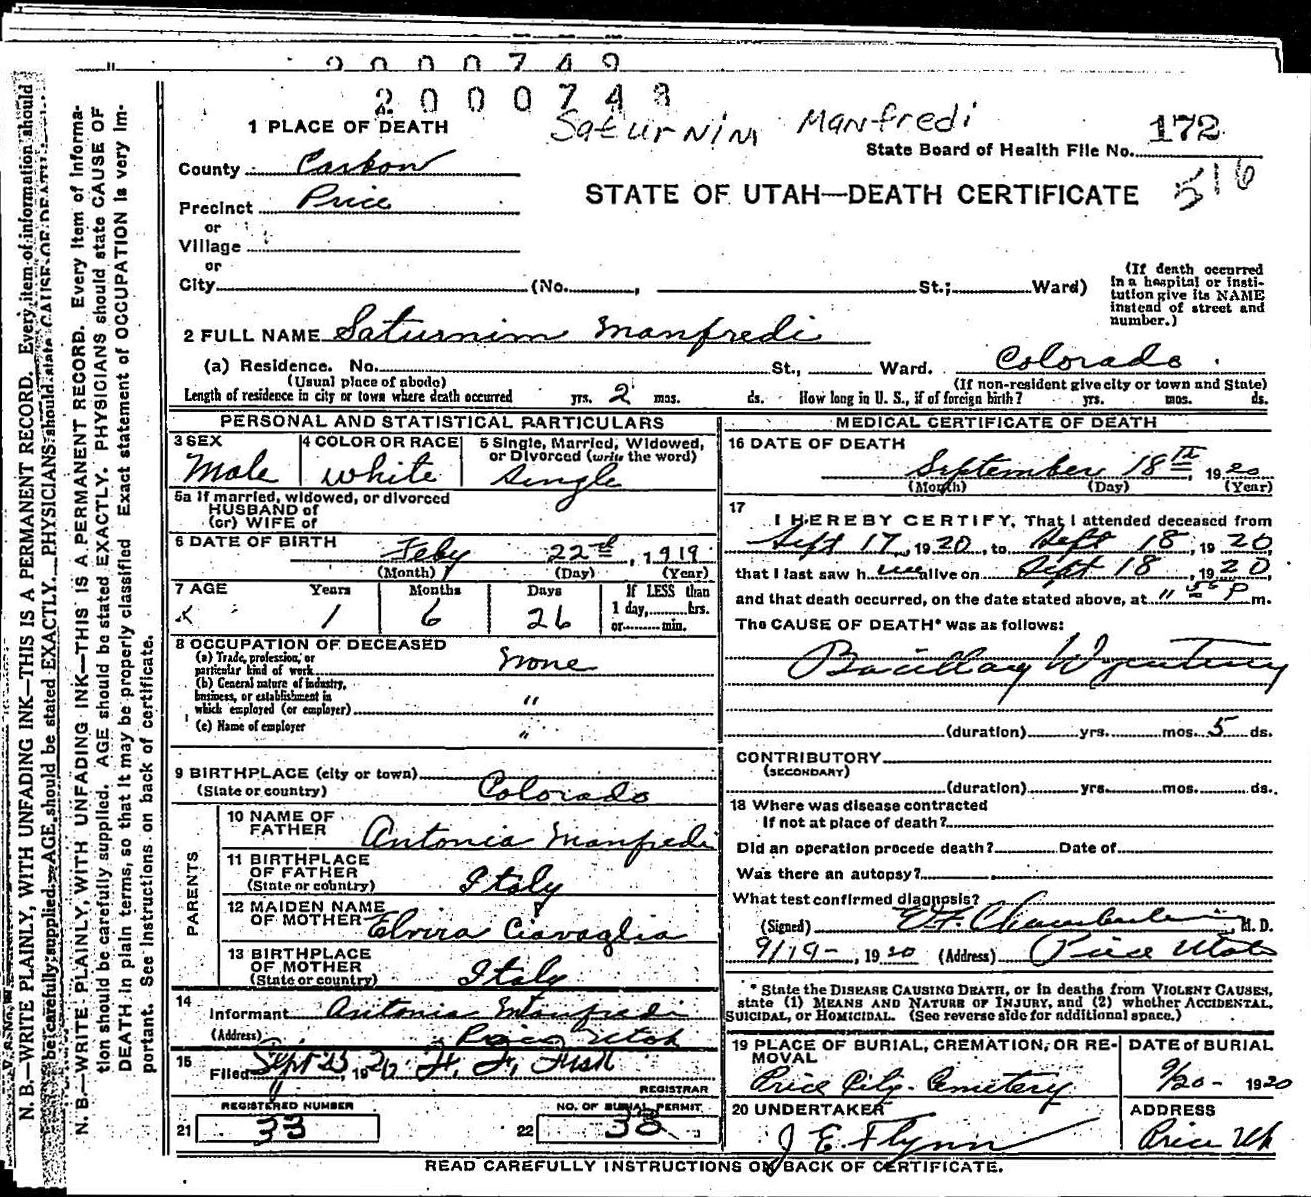 2000749
2000748
Saturnim Manfredi
1 PLACE OF DEATH
State Board of Health File No. 172
516
County Carbon
STATE OF UTAH—DEATH CERTIFICATE
Precinct Price
or
Village
or
City (No. , St.; Ward)
(If death occurred in a hospital or institution give its NAME instead of street and number.)
2 FULL NAME Saturnim Manfredi
(a) Residence. No. St., Ward. Colorado
(Usual place of abode) (If non-resident give city or town and State)
Length of residence in city or town where death occurred yrs. 2 mos. ds. How long in U. S., if of foreign birth? yrs. mos. ds.
PERSONAL AND STATISTICAL PARTICULARS
3 SEX Male
4 COLOR OR RACE White
5 Single, Married, Widowed, or Divorced (write the word) Single
5a If married, widowed, or divorced
HUSBAND of
(or) WIFE of
6 DATE OF BIRTH Feby 22nd, 1919
(Month) (Day) (Year)
7 AGE Years Months Days If LESS than
1 6 26 1 day, hrs.
or min.
8 OCCUPATION OF DECEASED
(a) Trade, profession, or particular kind of work None
(b) General nature of industry, business, or establishment in which employed (or employer) "
(c) Name of employer "
9 BIRTHPLACE (city or town)
(State or country) Colorado
PARENTS
10 NAME OF FATHER Antonia Manfredi
11 BIRTHPLACE OF FATHER (State or country) Italy
12 MAIDEN NAME OF MOTHER Elvira Ciavaglia
13 BIRTHPLACE OF MOTHER (State or country) Italy
14 Informant Antonia Manfredi
(Address) Price Utah
15 Filed Sept 23, 1920 H. F. Fisk
REGISTRAR
REGISTERED NUMBER
21 33
NO. OF BURIAL PERMIT
22 38
MEDICAL CERTIFICATE OF DEATH
16 DATE OF DEATH
September 18th, 1920
(Month) (Day) (Year)
17 I HEREBY CERTIFY, That I attended deceased from
Sept 17, 1920, to Sept 18, 1920,
that I last saw him alive on Sept 18, 1920,
and that death occurred, on the date stated above, at 11 50 P m.
The CAUSE OF DEATH* was as follows:
Bacillary Dysentery
(duration) yrs. mos. 5 ds.
CONTRIBUTORY
(SECONDARY)
(duration) yrs. mos. ds.
18 Where was disease contracted
If not at place of death?
Did an operation precede death? Date of
Was there an autopsy?
What test confirmed diagnosis?
(Signed) Chamberlain, M. D.
9/19-, 1920 (Address) Price Utah
* State the DISEASE CAUSING DEATH, or in deaths from VIOLENT CAUSES, state (1) MEANS AND NATURE OF INJURY, and (2) whether ACCIDENTAL, SUICIDAL, or HOMICIDAL. (See reverse side for additional space.)
19 PLACE OF BURIAL, CREMATION, OR REMOVAL
Price City Cemetery
DATE OF BURIAL
9/20- 1920
20 UNDERTAKER
J E Flynn
ADDRESS
Price Ut
READ CAREFULLY INSTRUCTIONS ON BACK OF CERTIFICATE.
N. B.—WRITE PLAINLY, WITH UNFADING INK—THIS IS A PERMANENT RECORD. Every item of information should
be carefully supplied. AGE should be stated EXACTLY. PHYSICIANS should state CAUSE OF DEATH
N. B.—WRITE PLAINLY, WITH UNFADING INK—THIS IS A PERMANENT RECORD. Every item of informa-
tion should be carefully supplied. AGE should be stated EXACTLY. PHYSICIANS should state CAUSE OF
DEATH in plain terms, so that it may be properly classified. Exact statement of OCCUPATION is very im-
portant. See instructions on back of certificate.